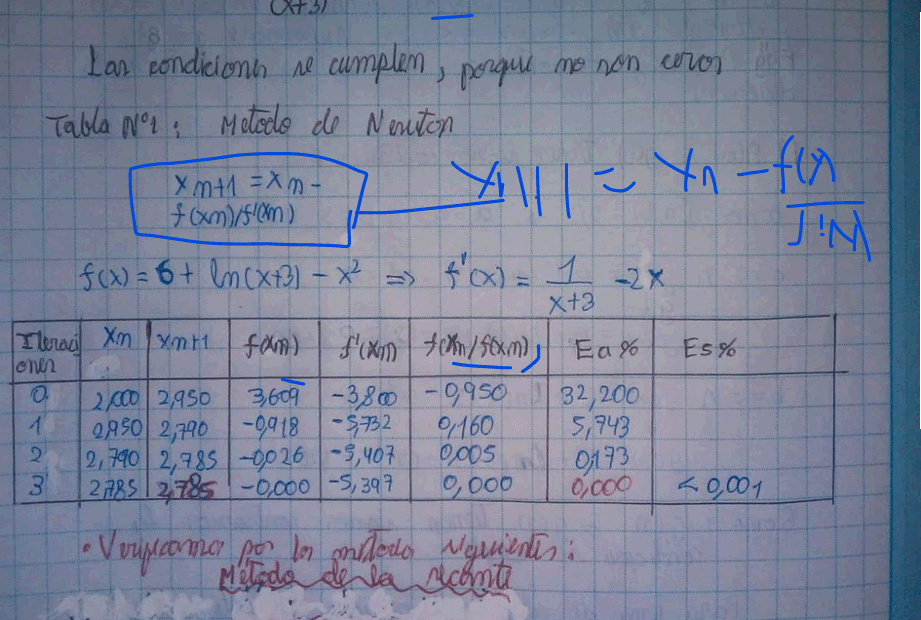 (x+3)
Las condiciones se cumplen, porque no son ceros
Tabla Nº1: Metodo de Newton
xn+1 = xn -
f(xn)/f'(xn)
xn+1 = xn - f(x)
f(x) = 6 + ln(x+3) - x² ⇒ f'(x) = 1/(x+3) - 2x
Iteraciones xn xn+1 f(xn) f'(xn) f(xn)/f(xn) Ea% Es%
0 2,000 2,950 3,609 -3,800 -0,950 32,200
1 2,950 2,790 -0,918 -5,732 0,160 5,743
2 2,790 2,785 -0,026 -5,407 0,005 0,173
3 2,785 2,785 -0,000 -5,397 0,000 0,000 < 0,001
• Verificamos por los metodo siguientes:
Metodo de la secante